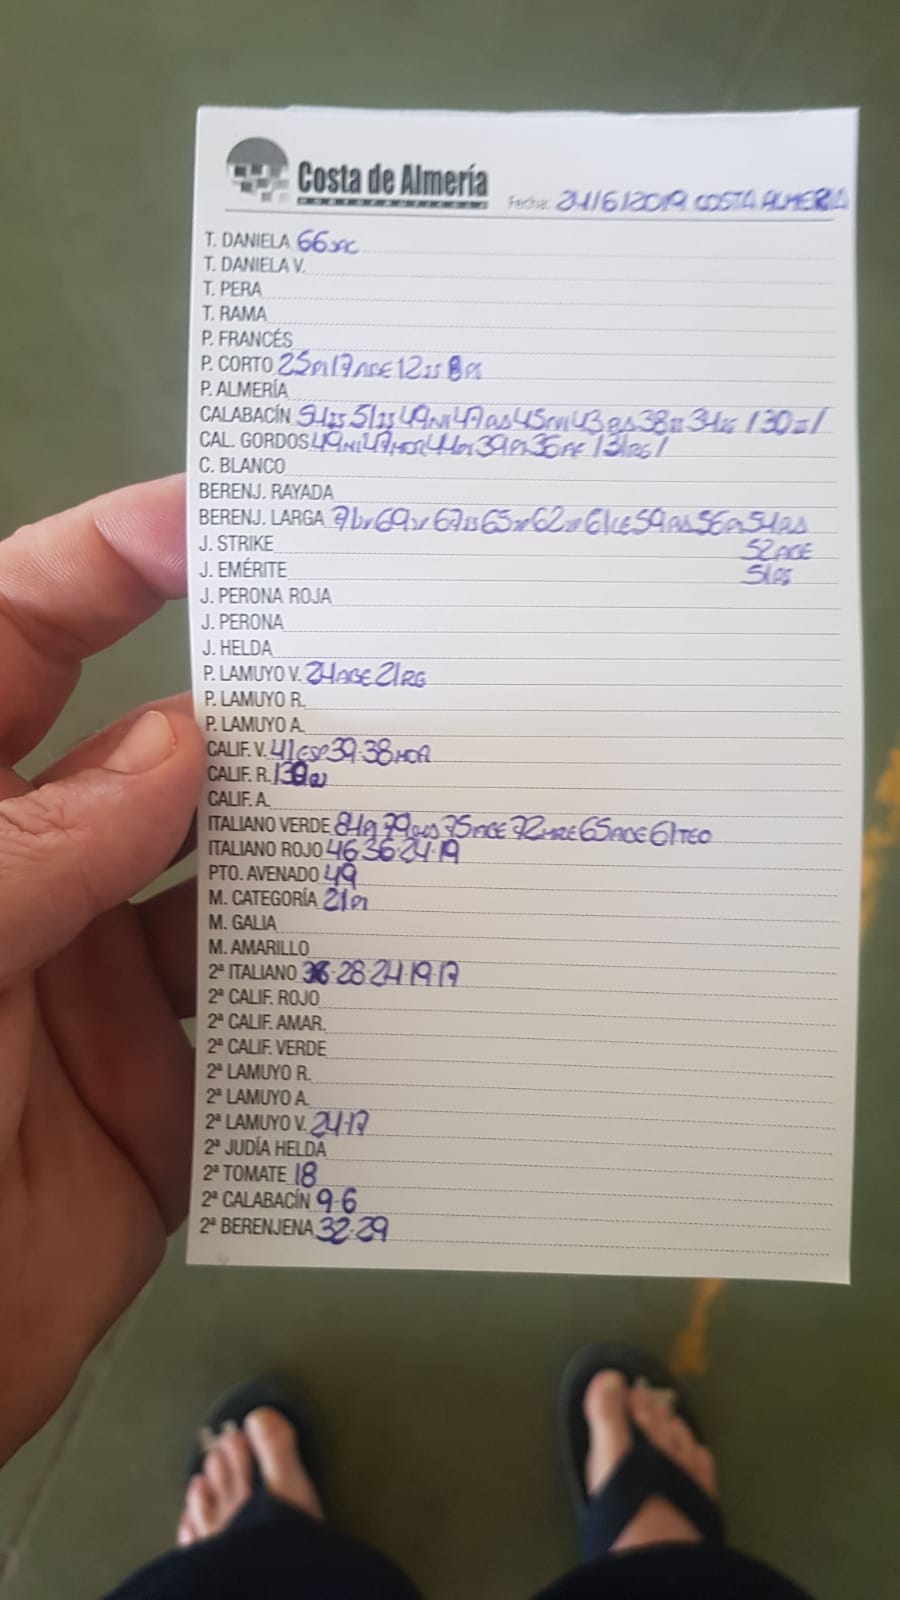 Costa de Almería
HORTOFRUTÍCOLA
Fecha: 24/6/2019 COSTA ALMERIA
T. DANIELA 66
T. DANIELA V.
T. PERA
T. RAMA
P. FRANCÉS
P. CORTO 25PI 17AGE 12JS 8PS
P. ALMERÍA
CALABACÍN 54JS 51JS 49NI 47AS 45 43 38 34 /30 /
CAL. GORDOS 49NI 47MOR 44PI 39PI 36 /31RG/
C. BLANCO
BERENJ. RAYADA
BERENJ. LARGA 71 69 67JS 65 62 61 59 56PI 54
J. STRIKE 52AGE
J. EMÉRITE 51PS
J. PERONA ROJA
J. PERONA
J. HELDA
P. LAMUYO V. 24AGE 21RG
P. LAMUYO R.
P. LAMUYO A.
CALIF. V. 41ESP 39-38MOR
CALIF. R.
CALIF. A.
ITALIANO VERDE 84 79 75AGE 72MRE 65AGE 61TEO
ITALIANO ROJO 46 36-24-19
PTO. AVENADO 49
M. CATEGORÍA 21PI
M. GALIA
M. AMARILLO
2ª ITALIANO 36-28-24-19-17
2ª CALIF. ROJO
2ª CALIF. AMAR.
2ª CALIF. VERDE
2ª LAMUYO R.
2ª LAMUYO A.
2ª LAMUYO V. 24-17
2ª JUDÍA HELDA
2ª TOMATE 18
2ª CALABACÍN 9-6
2ª BERENJENA 32-29